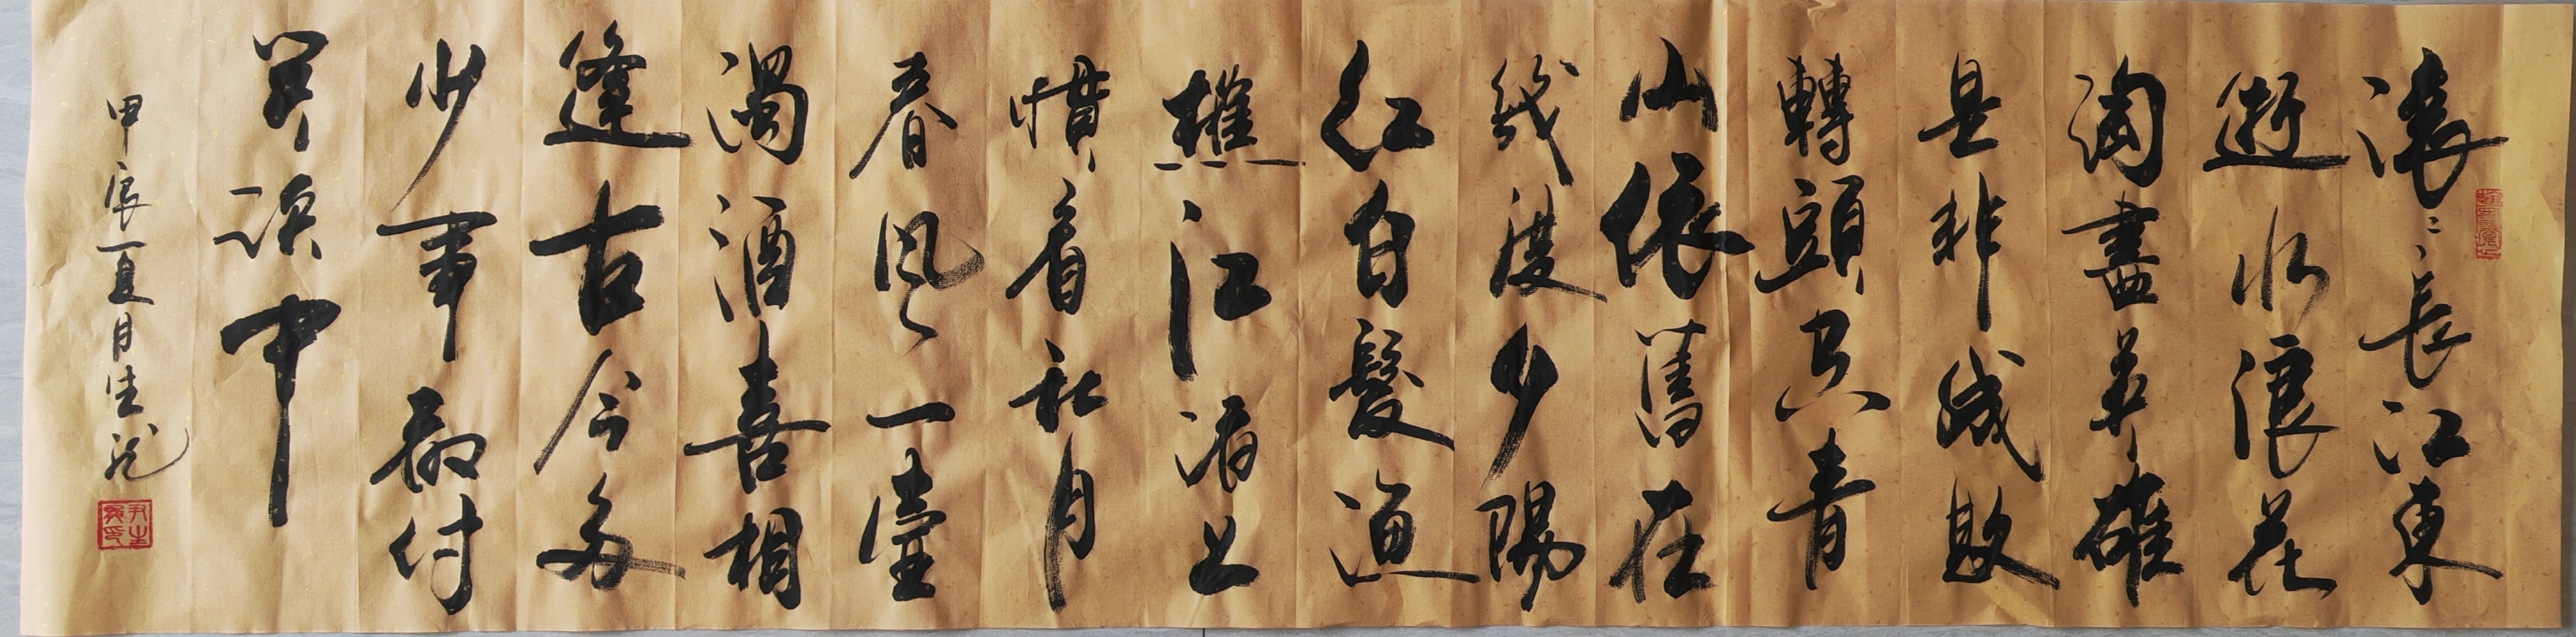 滚〻長江東
逝水浪花
淘盡英雄
是非成敗
轉頭空青
山依舊在
幾度夕陽
紅白髮漁
樵江渚上
慣看秋月
春風一壺
濁酒喜相
逢古今多
少事都付
笑談中
甲辰夏月生